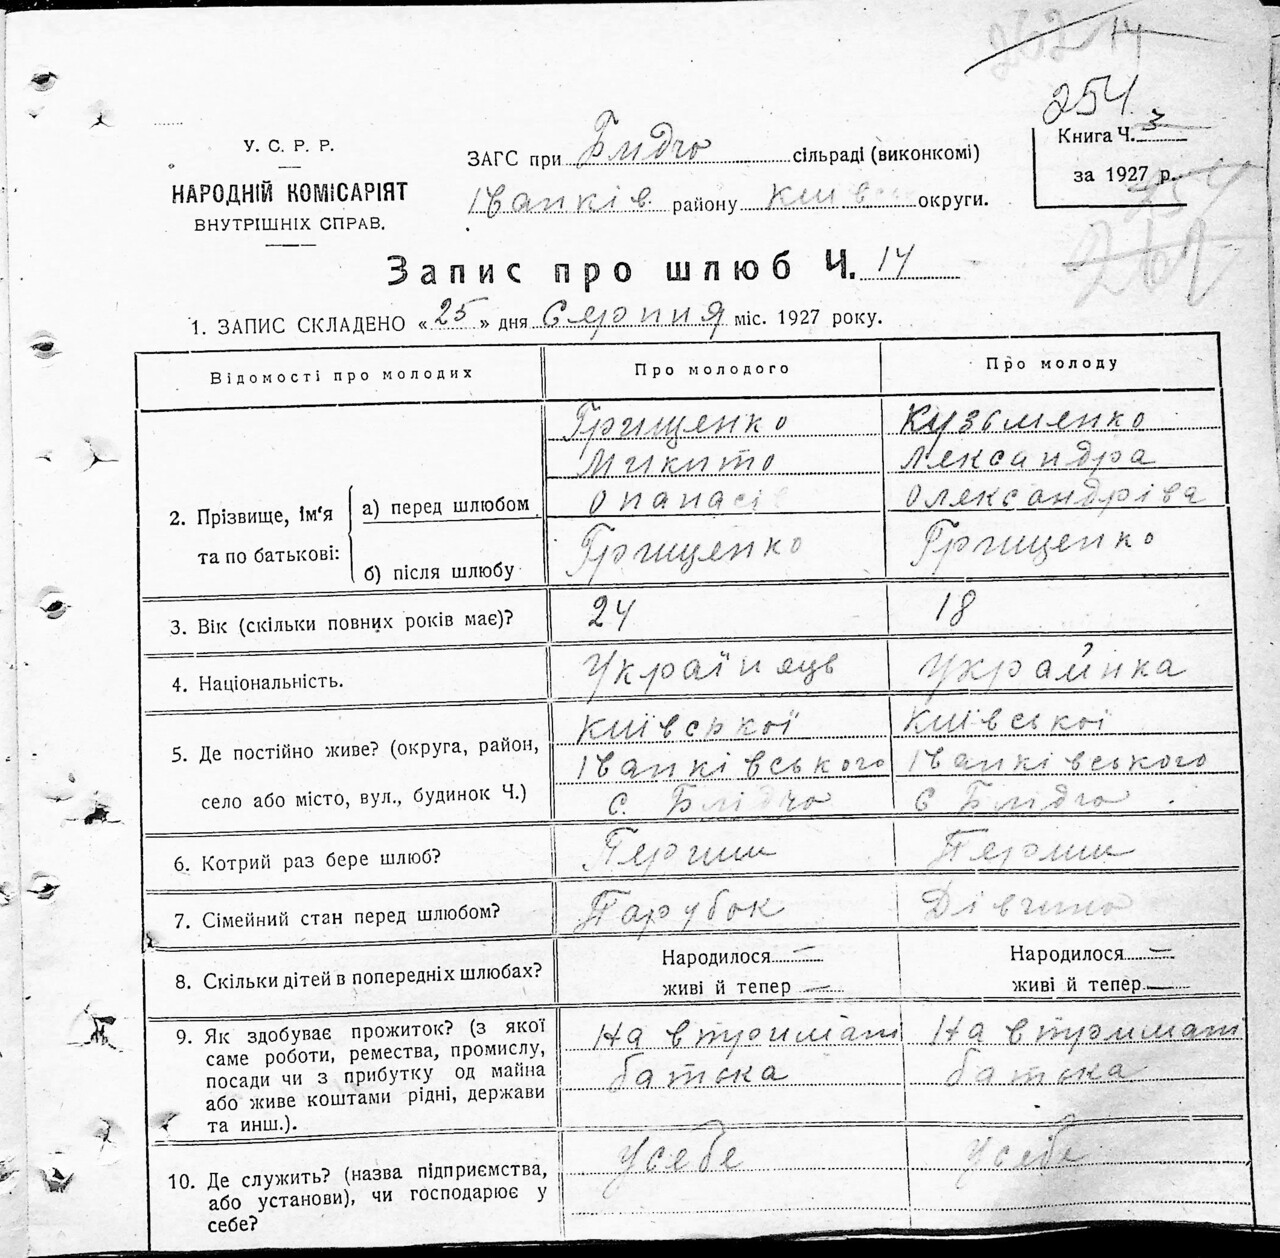 262 14
254
У. С. Р. Р.
НАРОДНІЙ КОМІСАРІЯТ
ВНУТРІШНІХ СПРАВ.
ЗАГС при Блидчо сільраді (виконкомі)
Іванків. району Київсь округи.
Книга Ч. 3
за 1927 р.
254
262
Запис про шлюб Ч. 14
1. ЗАПИС СКЛАДЕНО «25» дня Серпня міс. 1927 року.
Відомості про молодих Про молодого Про молоду
2. Прізвище, ім'я та по батькові:
а) перед шлюбом
Грищенко Кузьменко
Микито Лександра
Опанасів Олександріва
б) після шлюбу Грищенко Грищенко
3. Вік (скільки повних років має)? 24 18
4. Національність. Українець Українка
5. Де постійно живе? (округа, район,
село або місто, вул., будинок Ч.)
Київської Київської
Іванківського Іванківського
с. Блідчо с Блидчо
6. Котрий раз бере шлюб? Перши Перши
7. Сімейний стан перед шлюбом? Парубок Дівчино
8. Скільки дітей в попередніх шлюбах? Народилося — Народилося —
живі й тепер — живі й тепер —
9. Як здобуває прожиток? (з якої
саме роботи, ремества, промислу,
посади чи з прибутку од майна
або живе коштами рідні, держави
та инш.).
На втримат На втримат
батька батька
10. Де служить? (назва підприємства,
або установи), чи господарює у
себе?
У себе У себе